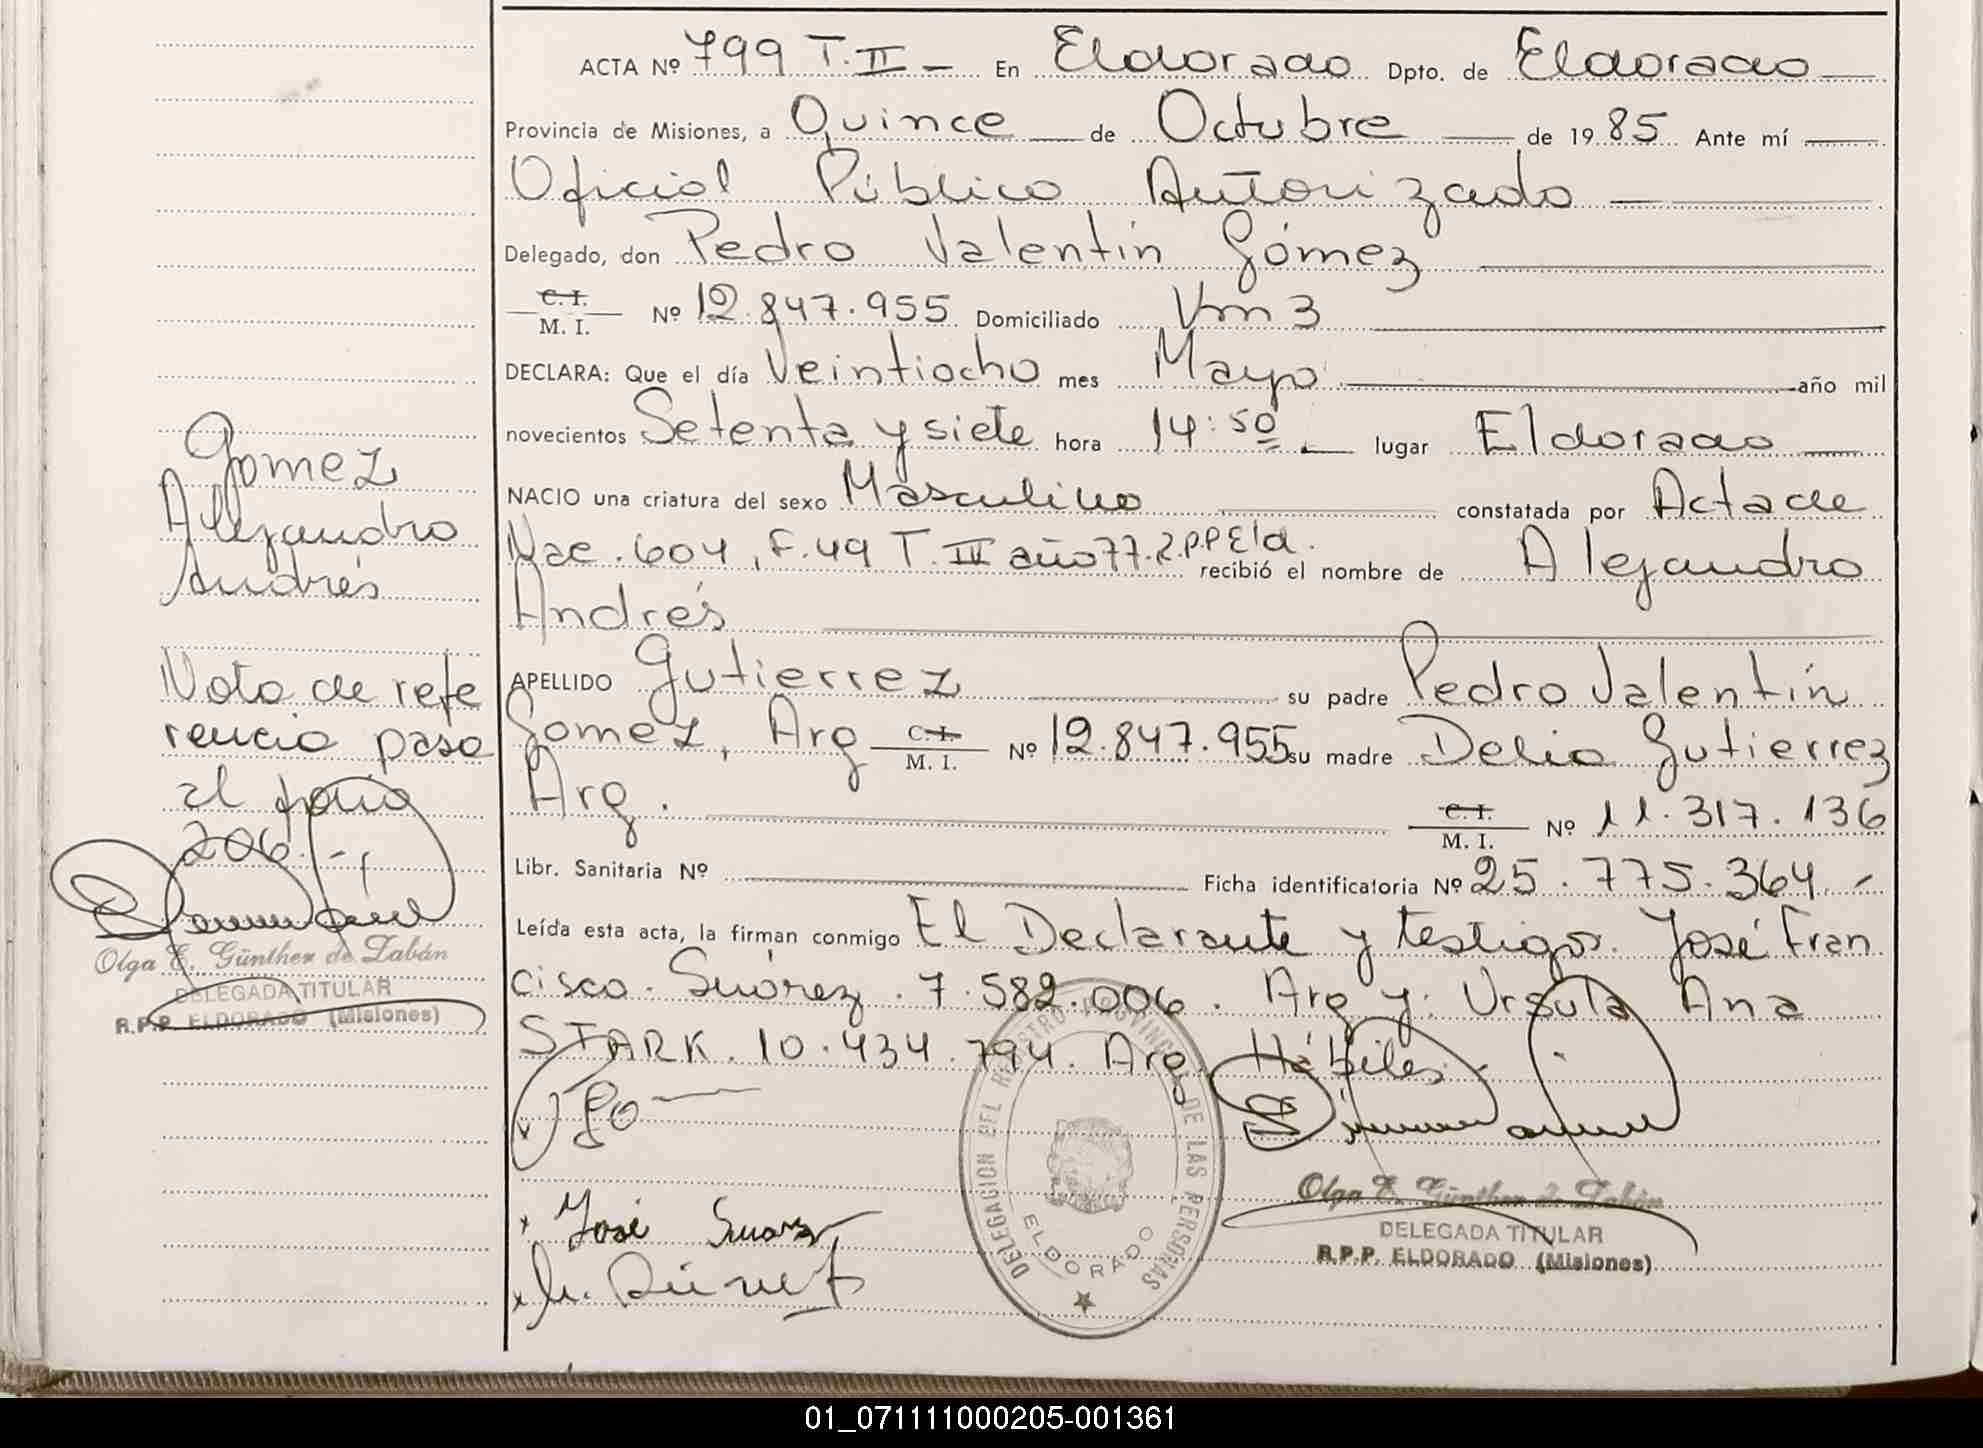 ACTA Nº 799 T. II - En Eldorado Dpto. de Eldorado
Provincia de Misiones, a Quince de Octubre de 1985 Ante mí
Oficial Público Autorizado
Delegado, don Pedro Valentín Gómez
C. I.
M. I. Nº 12.847.955 Domiciliado Km 3
DECLARA: Que el día Veintiocho mes Mayo año mil
novecientos Setenta y siete hora 14:50 lugar Eldorado
NACIO una criatura del sexo Masculino constatada por Acta de
Nac. 604, F. 49 T. III año 77. R.P.P Eld. recibió el nombre de Alejandro
Andrés
APELLIDO Gutierrez su padre Pedro Valentín
Gomez, Arg C. I. M. I. Nº 12.847.955 su madre Delia Gutierrez
Arg. C. I. M. I. Nº 11.317.136
Libr. Sanitaria Nº Ficha identificatoria Nº 25.775.364.-
Leída esta acta, la firman conmigo El Declarante y testigos. José Fran
cisco. Suárez. 7.582.006. Arg y: Ursula Ana
STARK. 10.434.794. Arg. Hábiles.
x José Suarez
DELEGACION DEL REGISTRO PROVINCIAL DE LAS PERSONAS
ELDORADO
Olga E. Günther de Zabán
DELEGADA TITULAR
R.P.P. ELDORADO (Misiones)
Gomez
Alejandro
Andrés
Nota de refe
rencia pasa
al folio
206.-
Olga E. Günther de Zabán
DELEGADA TITULAR
R.P.P. ELDORADO (Misiones)
01_071111000205-001361